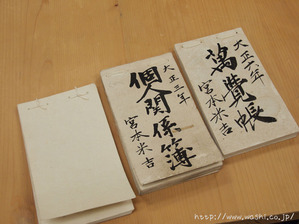 大正三年
個人関係簿
宮本米吉
大正六年
萬覺帳
宮本米吉
http://www.washi.co.jp/